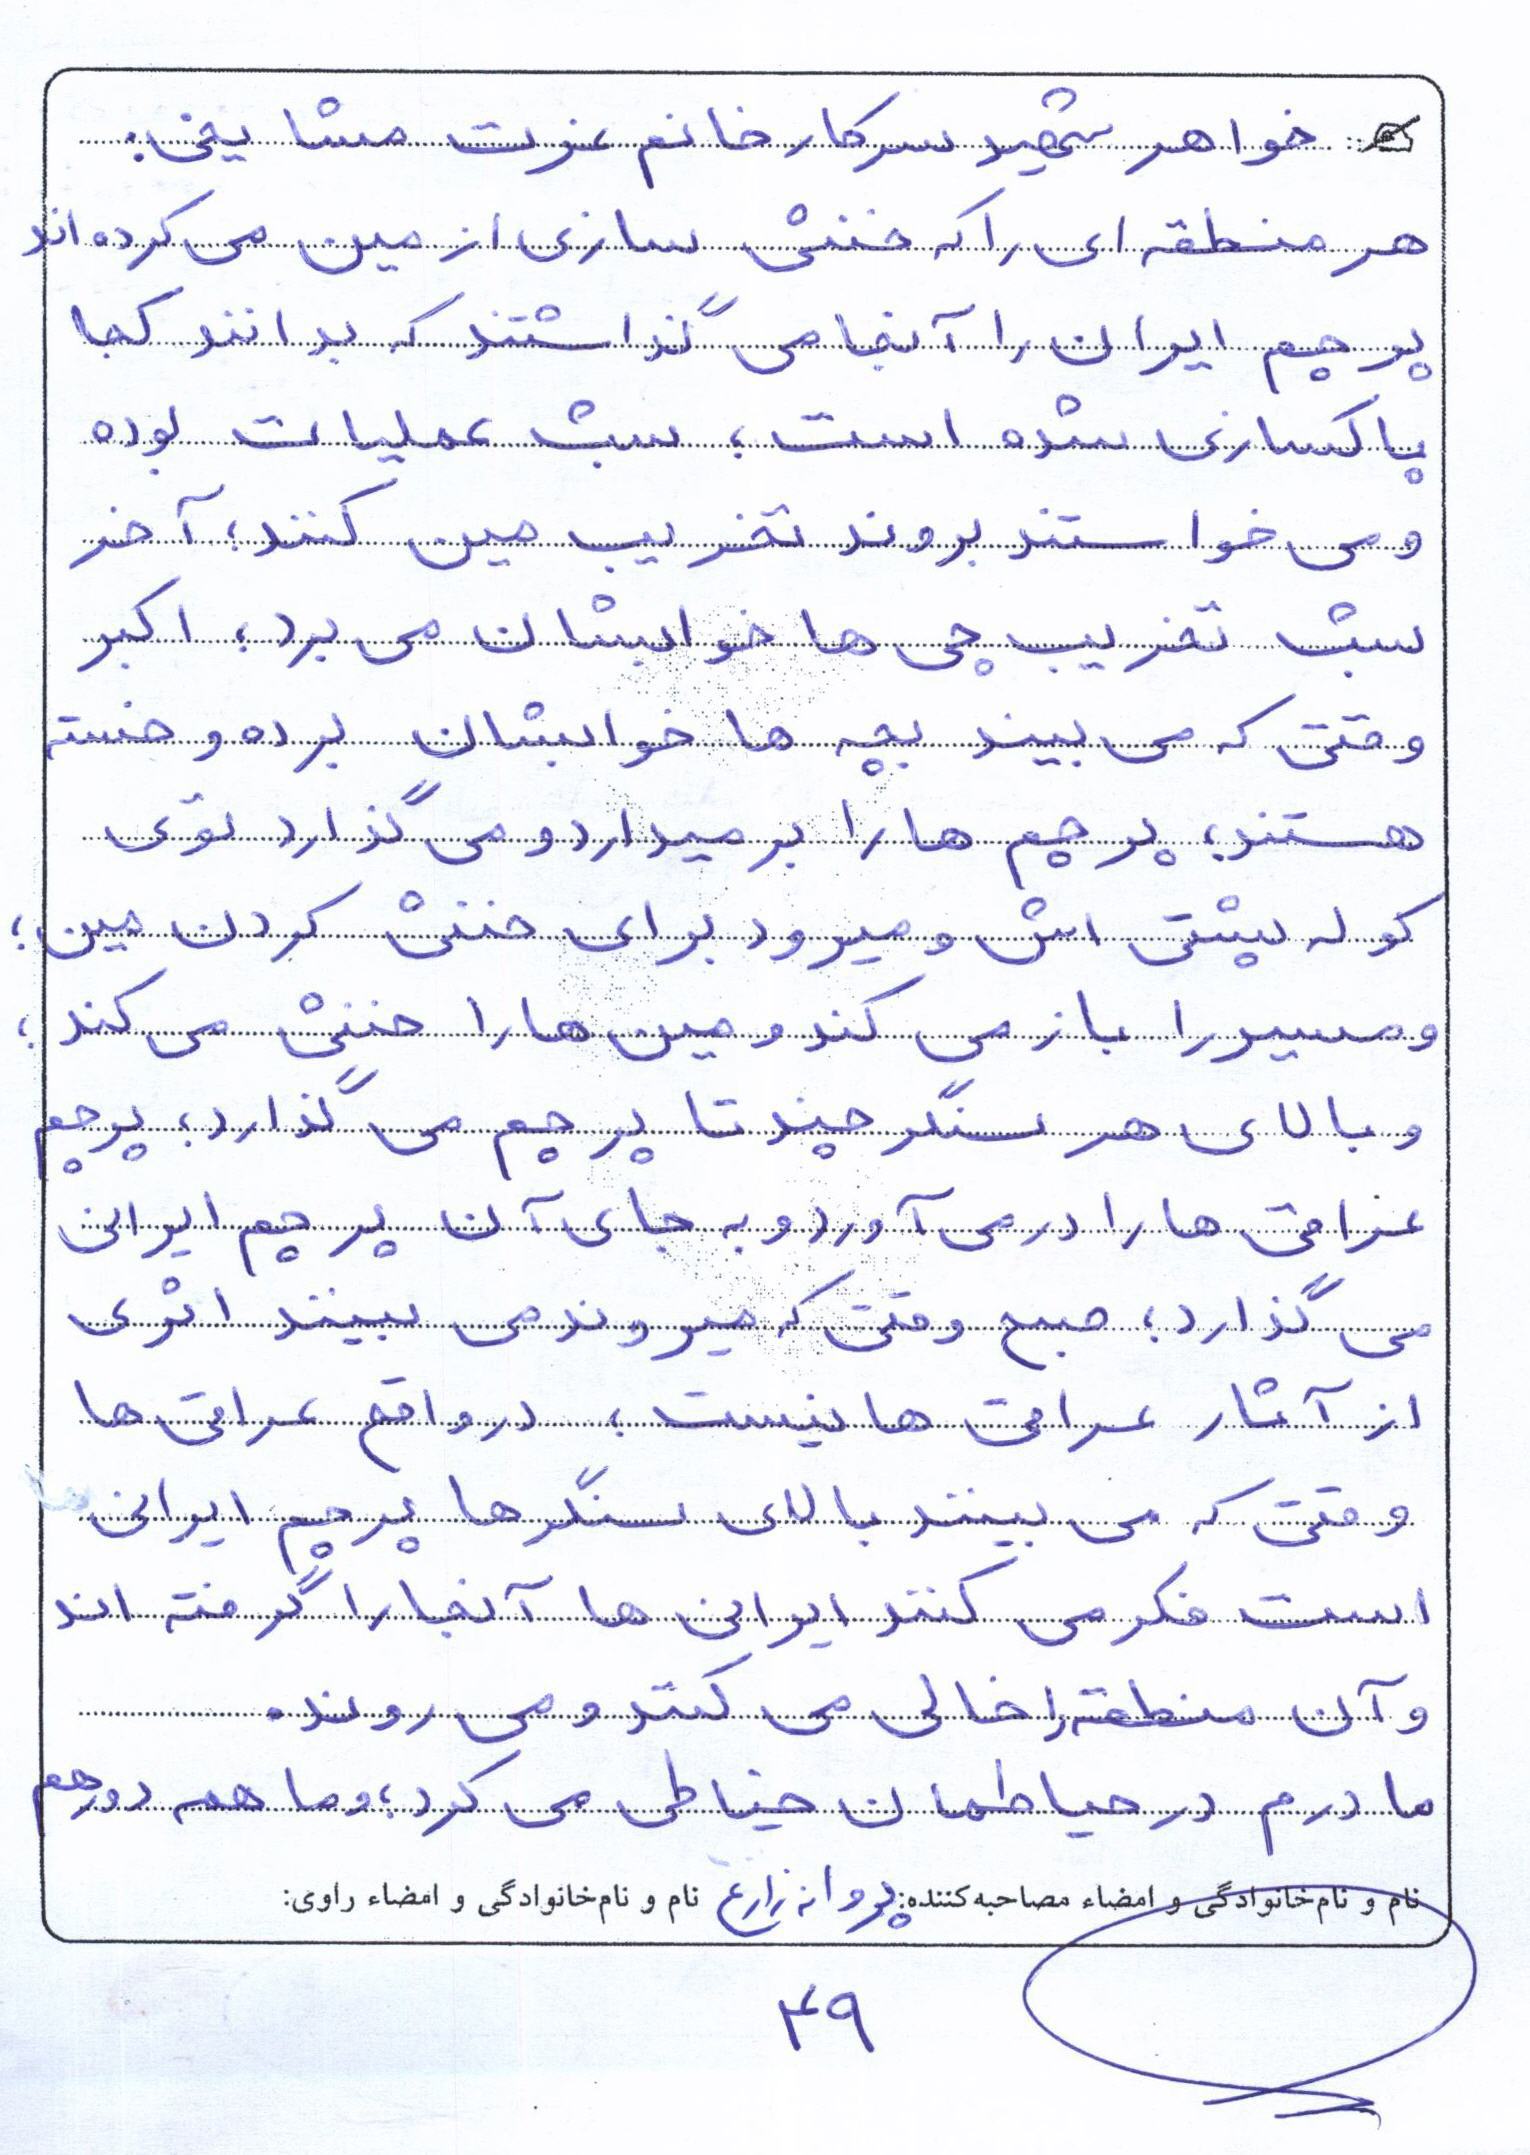 خواهر شهید سرکار خانم عزت مشایخی:
هر منطقه ای را که خنثی سازی از مین می کرده اند
پرچم ایران را آنجا می گذاشتند که بدانند کجا
پاکسازی شده است؛ شب عملیات بوده
و می خواستند بروند تخریب مین کنند؛ آخر
شب تخریب چی ها خوابشان می برد؛ اکبر
وقتی که می بیند بچه ها خوابشان برده و خسته
هستند؛ پرچم ها را برمیدارد و می گذارد توی
کوله پشتی اش و میرود برای خنثی کردن مین؛
و مسیر را باز می کند و مین ها را خنثی می کند؛
و بالای هر سنگر چند تا پرچم می گذارد؛ پرچم
عراقی ها را در می آورد و به جای آن پرچم ایرانی
می گذارد؛ صبح وقتی که میروند می بینند اثری
از آثار عراقی ها نیست؛ در واقع عراقی ها
وقتی که می بینند بالای سنگرها پرچم ایرانی
است فکر می کنند ایرانی ها آنجا را گرفته اند
و آن منطقه را خالی می کنند و می روند.
مادرم در حیاطمان خیاطی می کرد؛ و ما همه دورهم
نام و نام‌خانوادگی و امضاء مصاحبه‌کننده: پروانه زارع نام و نام‌خانوادگی و امضاء راوی:
۴۹